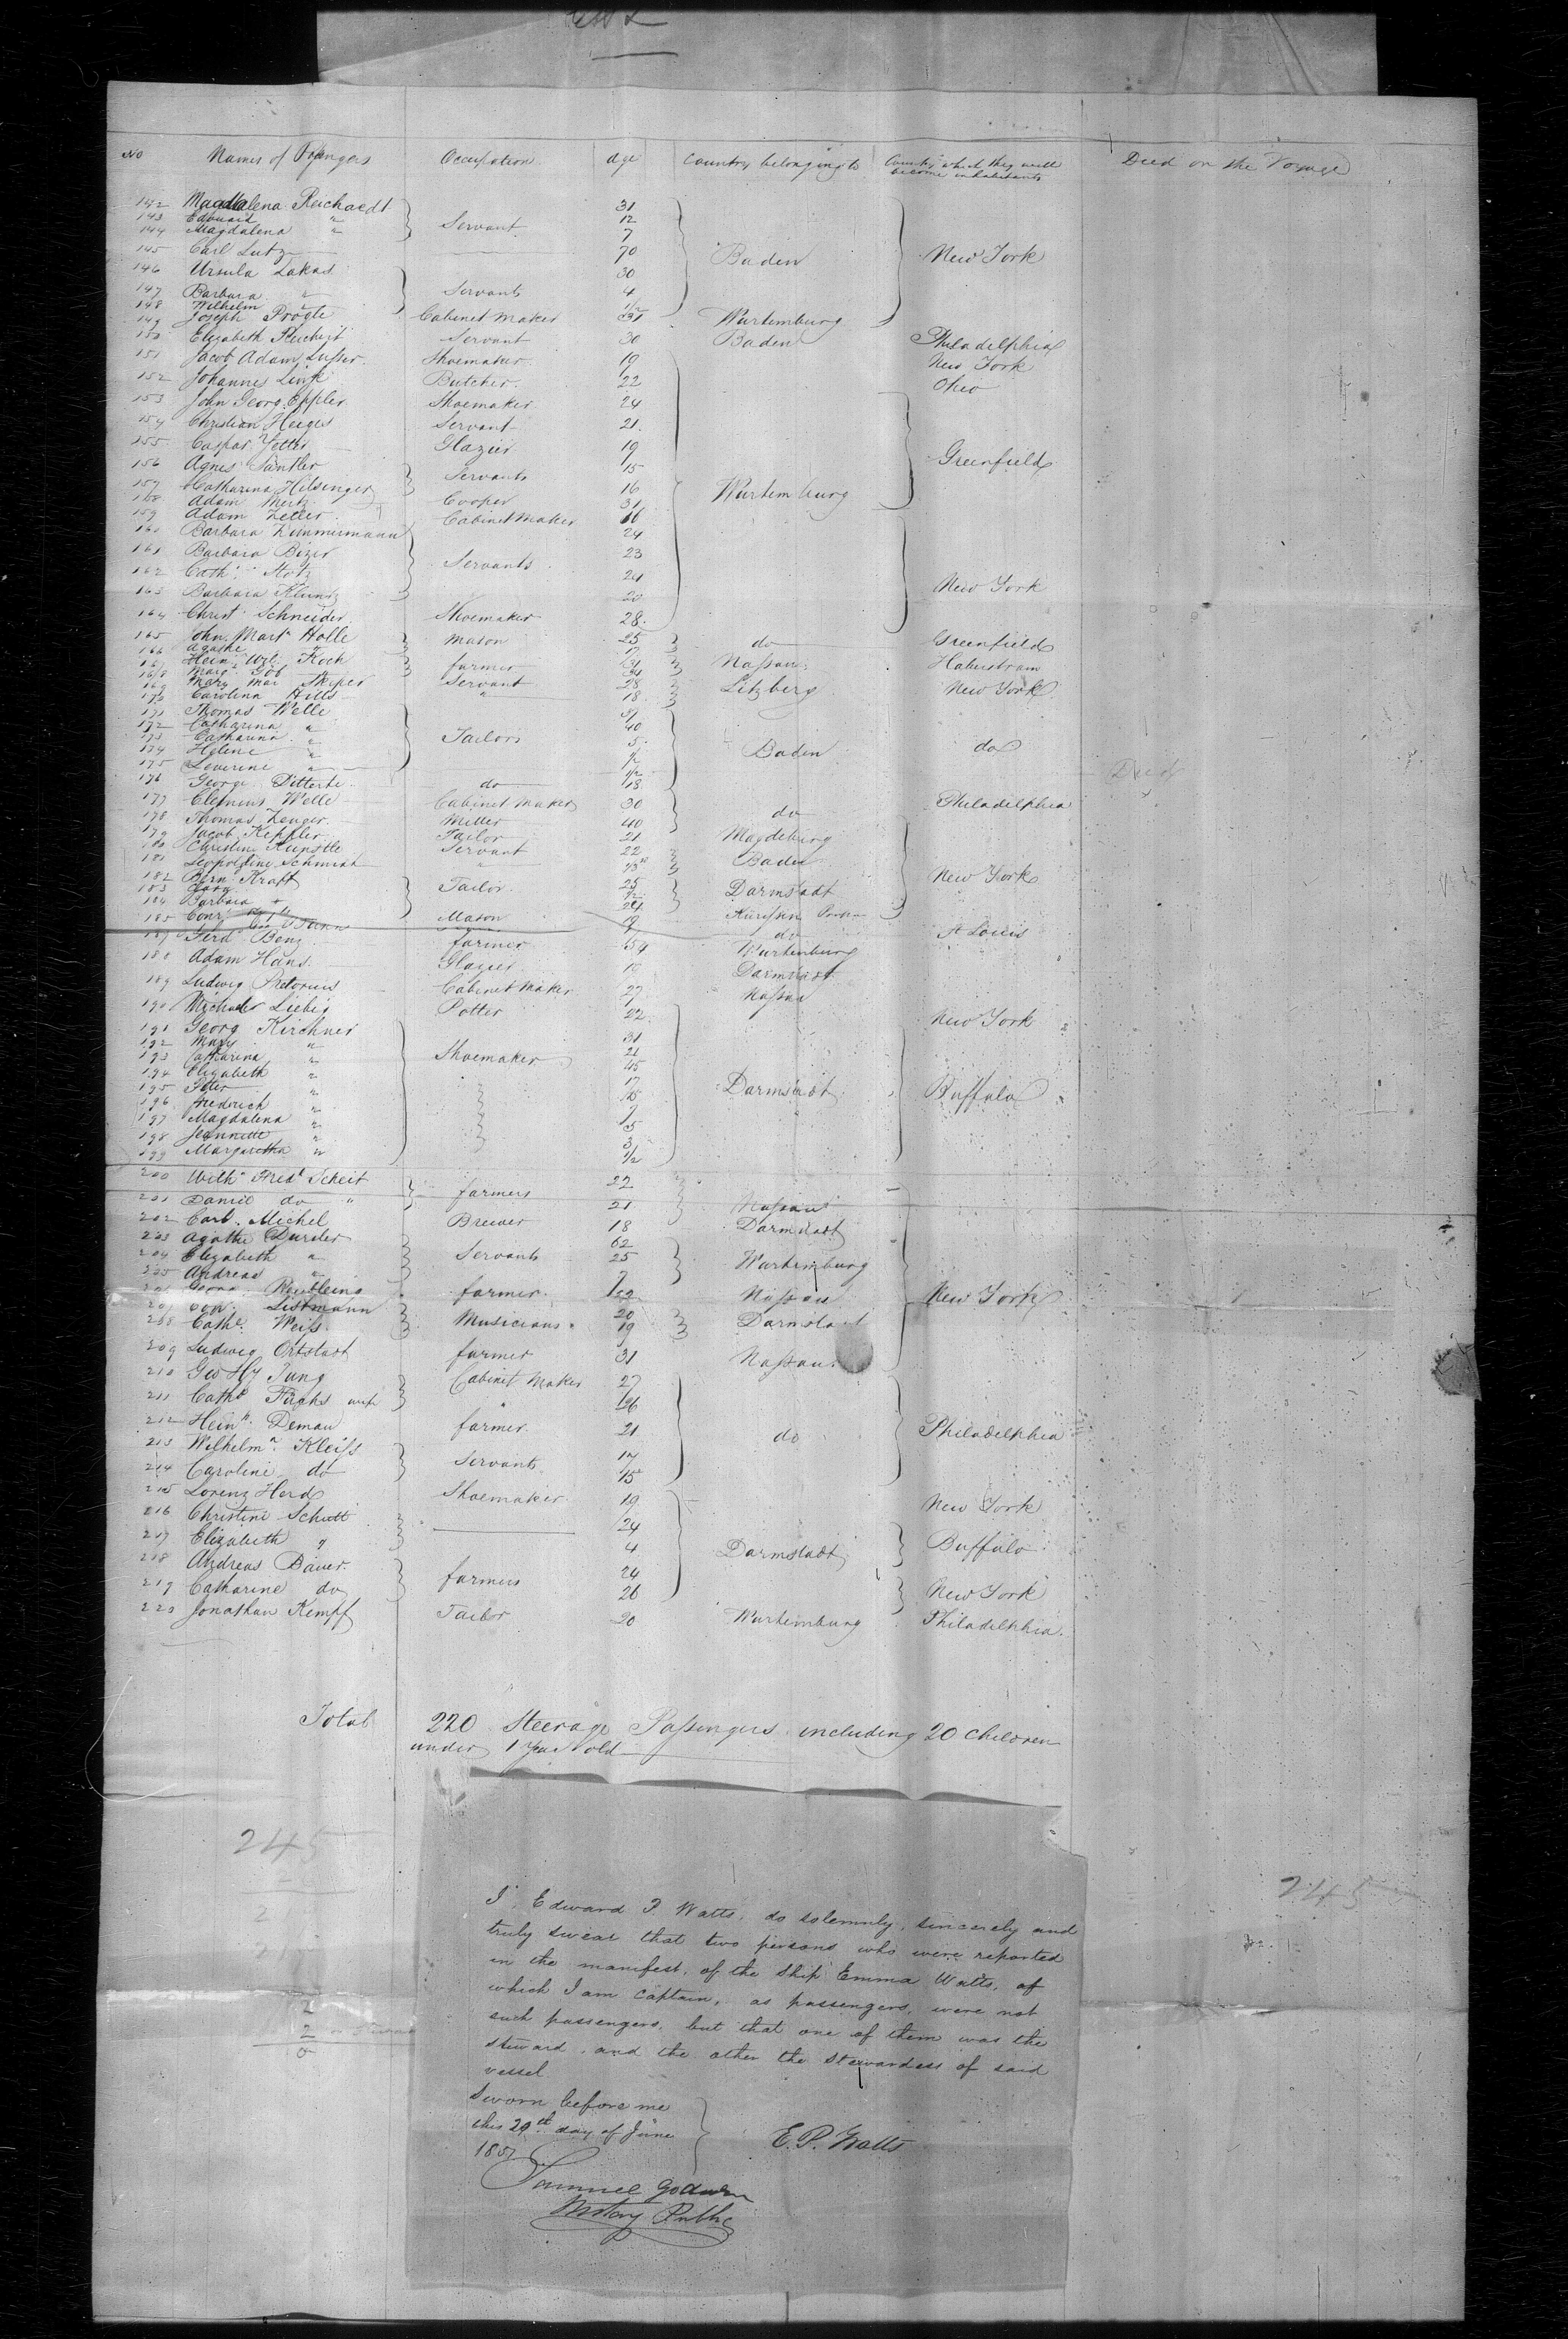 No Names of Passengers Occupation age Country belonging to Country which they will become inhabitants Died on the Voyage
142 Magdalena Reichardt 31
143 Edouard " 12
144 Magdalena " Servant 7
145 Carl Lutz 70 Baden New York
146 Ursula Lakas 30
147 Barbara " Servants 4
148 Wilhelm " 1/2
149 Joseph Progle Cabinet Maker Wurtemburg
150 Elizabeth Reichert Servant 30 Baden Philadelphia
151 Jacob Adam Lusser Shoemaker 19 New York
152 Johannes Link Butcher 22 Ohio
153 John Georg Eppler Shoemaker 24
154 Christian Heiges Servant 21
155 Caspar Yetter Glazier 19 Greenfield
156 Agnes Santler Servants 15
157 Catharina Hilsinger 16 Wurtemburg
158 Adam Mertz Cooper 31
159 Adam Zeller Cabinet Maker 16
160 Barbara Zimmermann 24
161 Barbara Bizer 23
162 Cath. Stotz Servants 24 New York
163 Barbara Kuentz 20
164 Christ Schneider Shoemaker 28
165 John Mart Holle Mason 25 do Greenfield
166 Agathe " 17
167 Hein Wil. Koch farmer 31 Nassau
168 Marg. 
169 Mary Mar Servant 28 Litzberg New York
170 Carolina Hills " 18
171 Thomas Welle
172 Catharina " 40
173 Catharina " Tailors 5 Baden do
174 Helene " 1/2
175 Severine " 1/2 Died
176 George Ditterle do 18
177 Clemens Welle Cabinet Maker 30 do Philadelphia
178 Thomas Zenger Miller 40
179 Jacob Keppler Tailor 21 Magdeburg
180 Christine Kunstle Servant 22 Baden
181 Leopoldine Schmidt "
182 Bern Kraft Tailor 25 Darmstadt New York
183 Georg 1/2
184 Barbara 24
185 Conr. Mason 19 St Louis
187 Ferd Benz farmer 54 Wurtemburg
188 Adam Hans Glazier 19 Darmstadt
189 Ludwig Pretorius Cabinet Maker 27 Nassau
190 Michael Liebig Potter 22 New York
191 Georg Kirchner 31
192 Mary " 21
193 Catharina " Shoemaker 45
194 Elizabeth " 17 Darmstadt Buffalo
195 Peter " 15
196 Friedrich " 7
197 Magdalena " 5
198 Jeannette " 3
199 Margaretha " 1/2
200 Wilh Fred Scheit farmers 22
201 Daniel do " 21 Nassau
202 Carl Michel Brewer 18 Darmstadt
203 Agathe Dursler 62
204 Elizabeth " Servants 25 Wurtemburg
205 Andreas " 7
206 Georg farmer 22 Nassau New York
207 Con. Listmann Musicians 20 Darmstadt
208 Cath. Weiss 19
209 Ludwig Ortstadt farmer 31 Nassau
210 Geo Hy Jung Cabinet Maker 27
211 Cath Fuchs wife " 26
212 Heinr. Deman farmer 21 do Philadelphia
213 Wilhelm. Kleiss Servants 17
214 Caroline do 15
215 Lorenz Herd Shoemaker 19 New York
216 Christine Schutt 24
217 Elizabeth " 4 Darmstadt Buffalo
218 Andreas Bauer farmers 24
219 Catharine do 26 New York
220 Jonathan Kempf Tailor 20 Wurtemburg Philadelphia
Total 220 Steerage Passengers including 20 Children
under 1 Year old
245
245
I Edward P. Watts, do solemnly, sincerely and
truly swear that two persons who were reported
in the manifest, of the Ship Emma Watts, of
which I am Captain, as passengers, were not
such passengers, but that one of them was the
steward, and the other the stewardess of said
vessel
Sworn before me
this 29th day of June
1857
E. P. Watts
Samuel Godwin
Notary Public